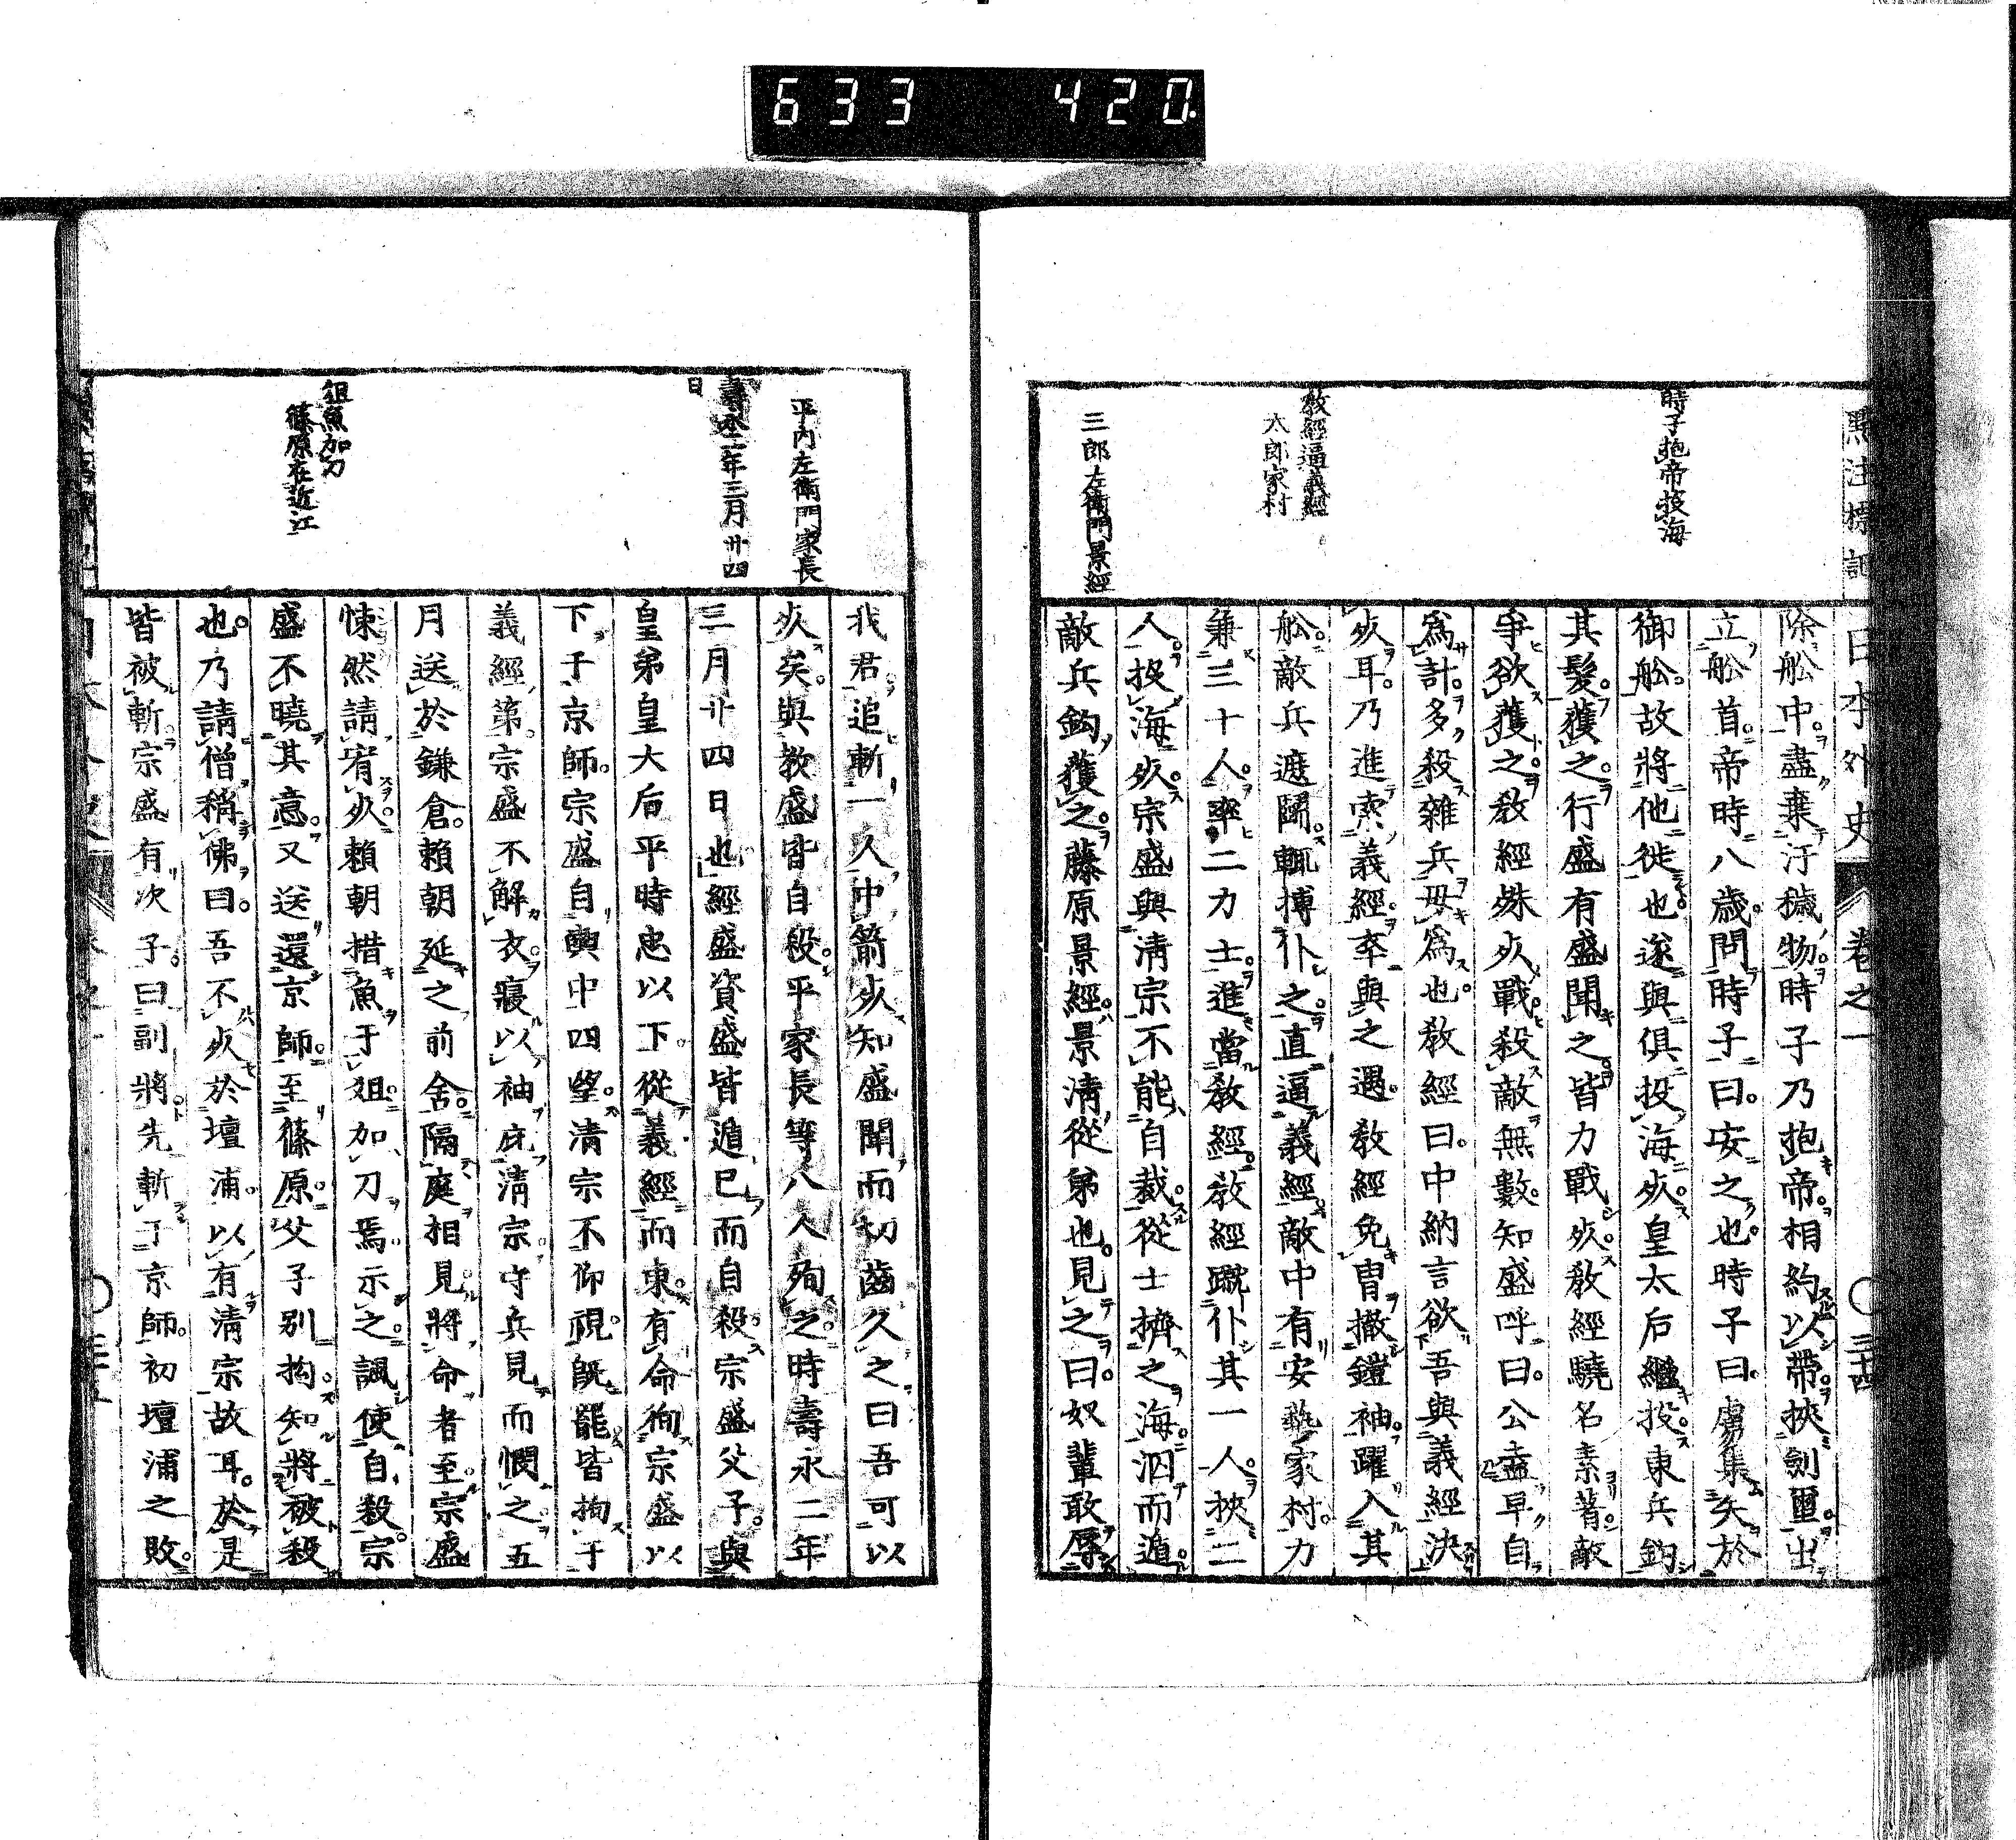 633 420.
點注標記
日本外史 卷之一 〇三十四
時子抱帝投海
教經逼義經
太郎家村
三郎左衛門景經
除舩中盡棄汙穢物時子乃抱帝相約以帶挾劍璽出
立舩首帝時八歳問時子曰安之也時子曰虜集矢於
御舩故將他徙也遂與俱投海死皇太后繼投東兵鈎
其髮獲之行盛有盛聞之皆力戰死教經驍名素著敵
爭欲獲之教經殊死戰殺敵無數知盛呼曰公盍早自
為計多殺雜兵毋為也教經曰中納言欲吾與義經決
死耳乃進索義經率與之遇教經免冑撤鎧袖躍入其
舩敵兵遮鬭輒搏仆之直逼義經敵中有安藝家村力
兼三十人率二力士進當教經教經蹴仆其一人挾二
人投海死宗盛與清宗不能自裁從士擠之海泅而遁
敵兵鈎獲之藤原景經景清從弟也見之曰奴輩敢辱
平内左衛門家長
壽永二年三月廿四
日
俎魚加刀
篠原在近江
我君追斬一人中箭死知盛聞而切齒久之曰吾可以
死矣與教盛皆自殺平家長等八人殉之時壽永二年
三月廿四日也經盛資盛皆遁已而自殺宗盛父子與
皇弟皇大后平時忠以下從義經而東有命徇宗盛以
下于京師宗盛自輿中四望清宗不仰視既罷皆拘于
義經第宗盛不解衣寢以袖庇清宗守兵見而憫之五
月送於鎌倉賴朝延之前舍隔庭相見將命者至宗盛
悚然請宥死賴朝措魚于俎加刀焉示之諷使自殺宗
盛不曉其意又送還京師至篠原父子別拘知將被殺
也乃請僧稱佛曰吾不死於壇浦以有清宗故耳於是
皆被斬宗盛有次子曰副將先斬于京師初壇浦之敗